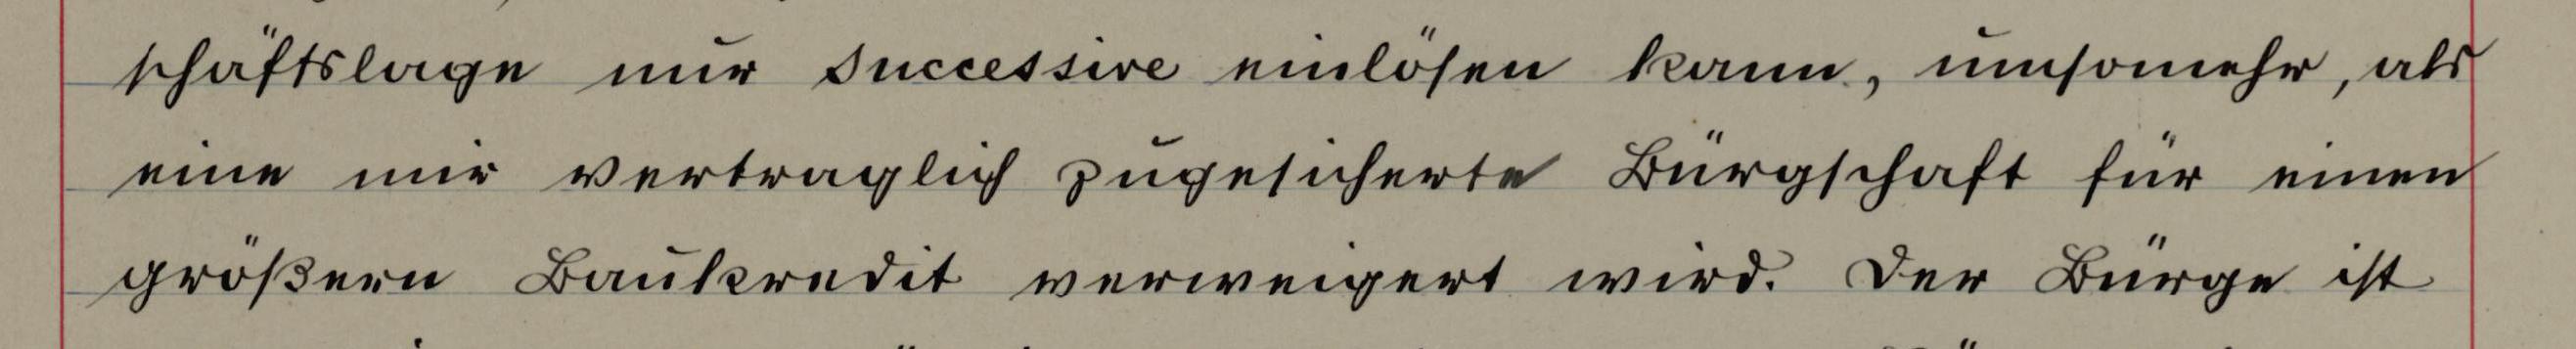 schäftslage nur successive einlösen kann, umsomehr, als
eine mir vertraglich zugesicherte Bürgschaft für einen
größern Baukredit verweigert wird. Der Bürge ist